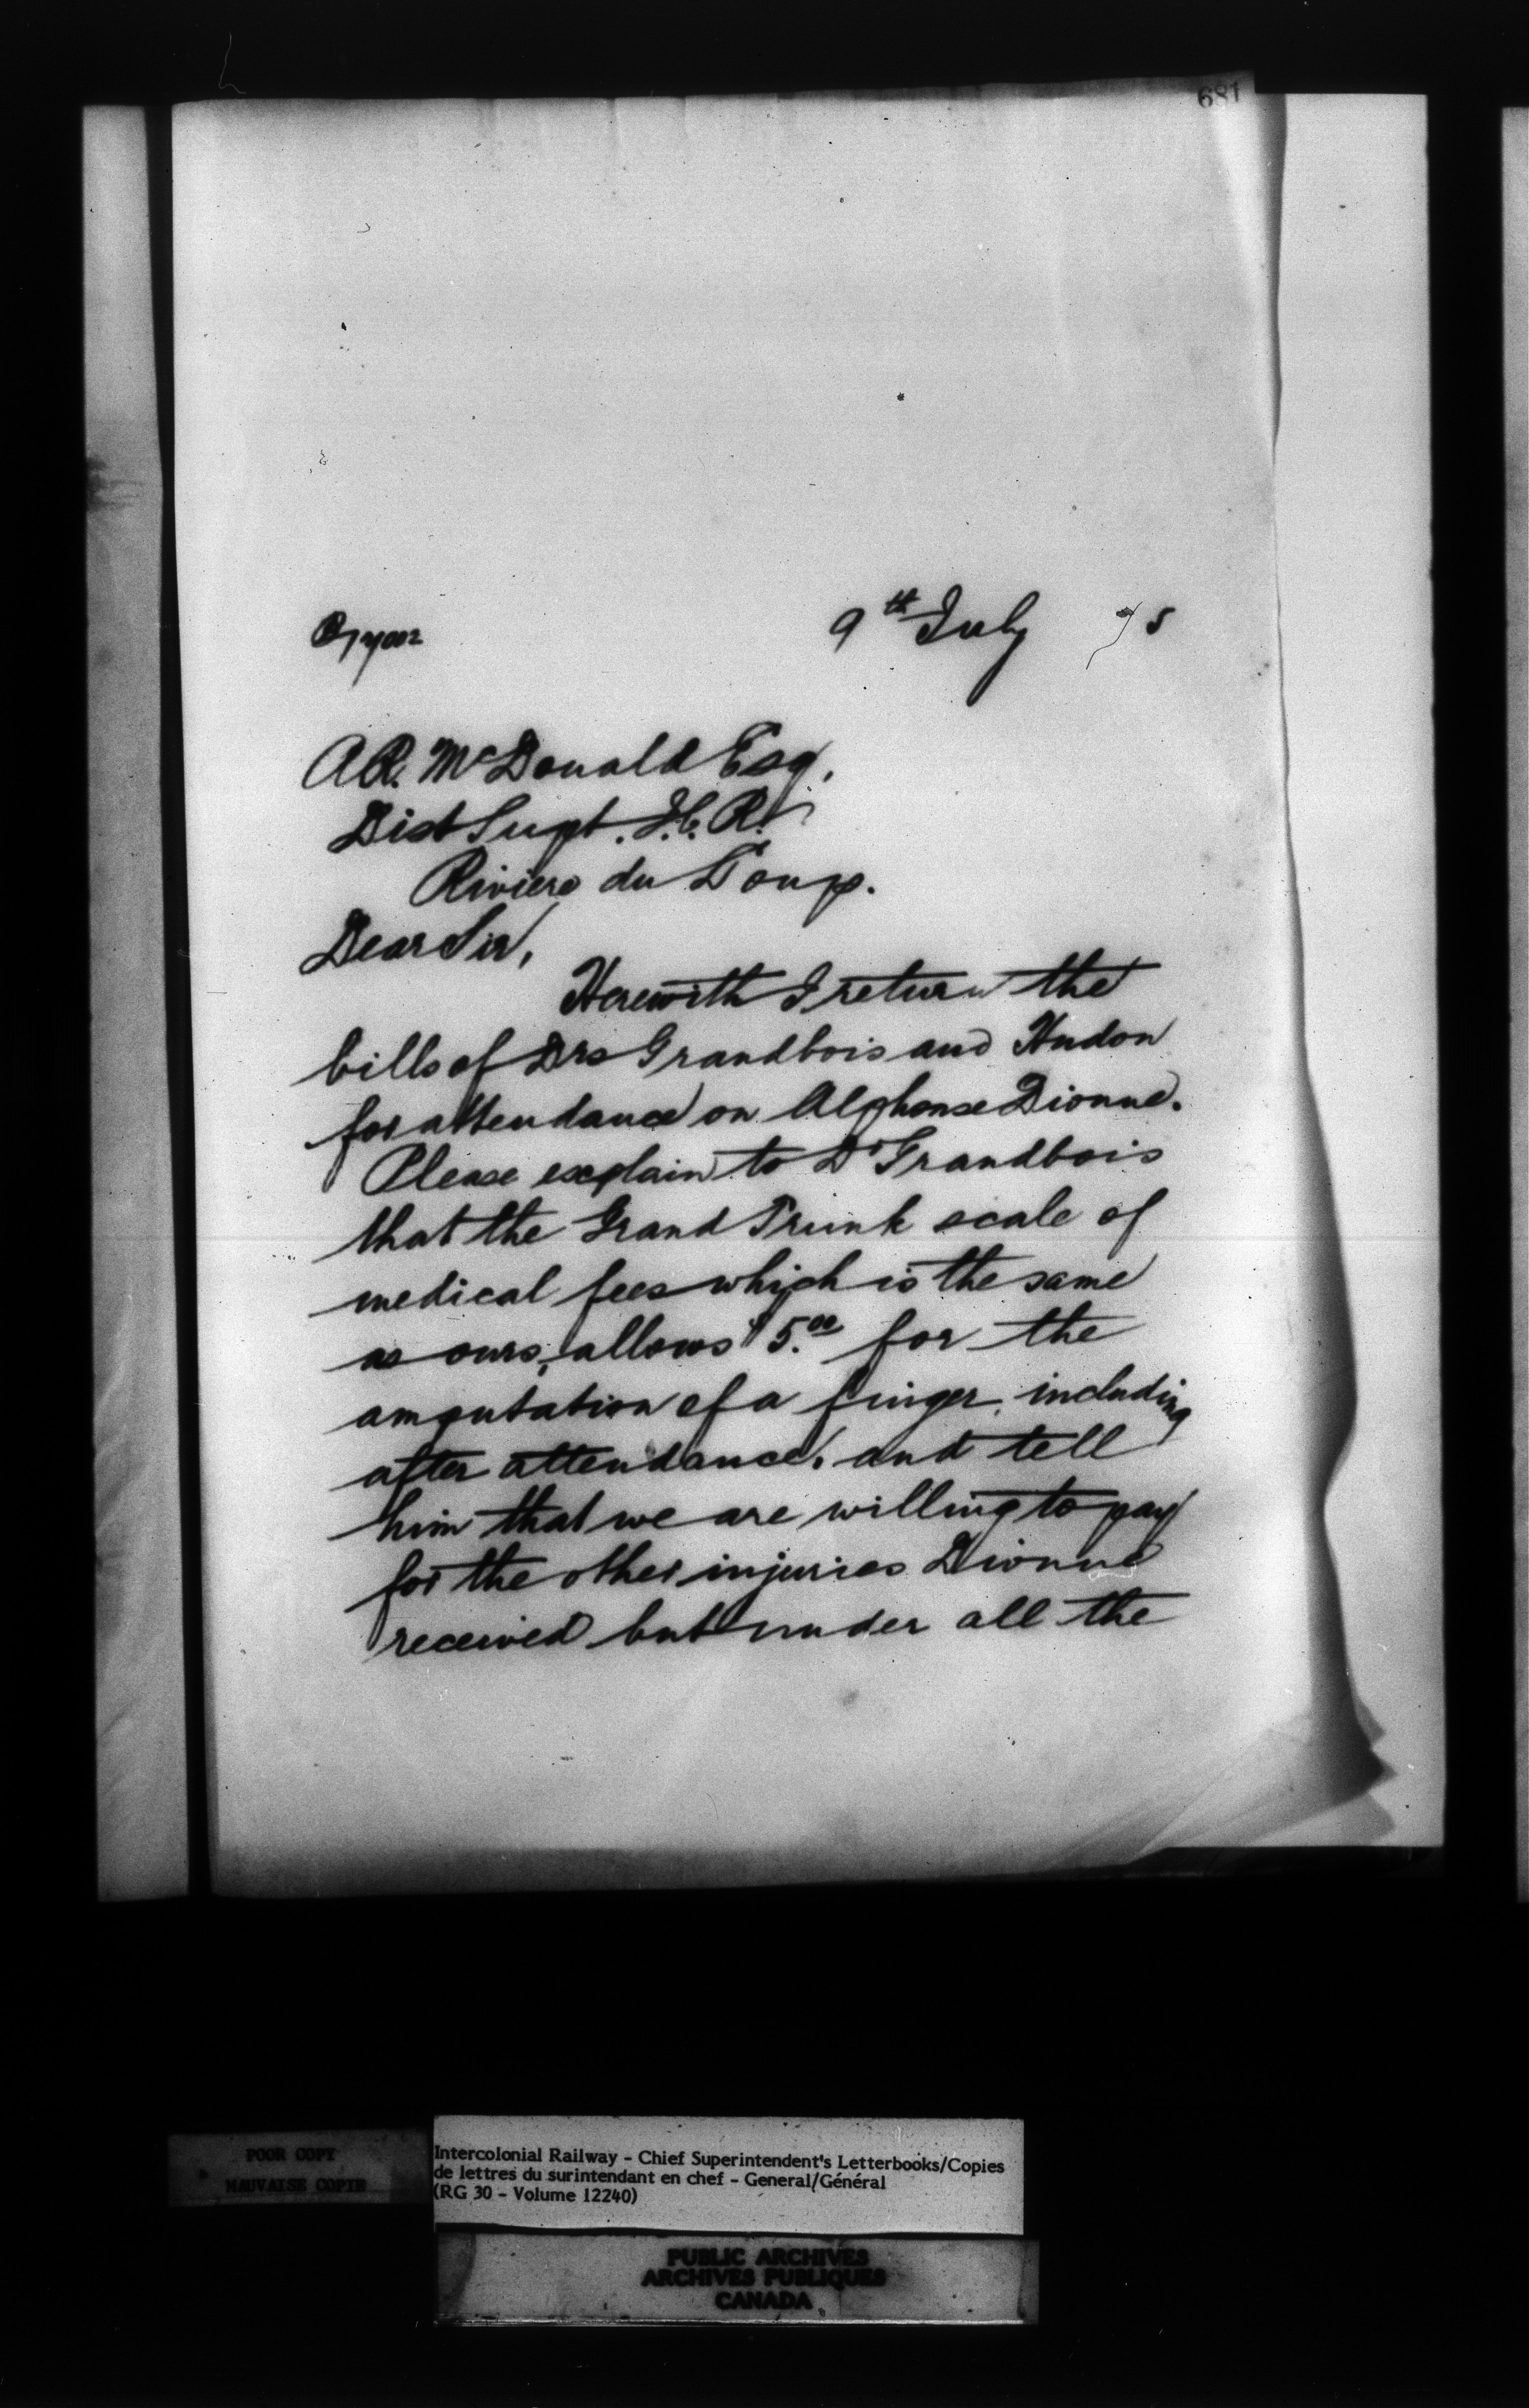 681
9th July 95
A.R. McDonald Esq.
Dist Supt. I.C.R.
Riviere du Loup.
Dear Sir,
Herewith I return the
bills of Drs Grandbois and Hudon
for attendance on Alphonse Dionne.
Please explain to Dr Grandbois
that the Grand Trunk scale of
medical fees which is the same
as ours, allows $5.00 for the
amputation of a finger, including
after attendance, and tell
him that we are willing to pay
for the other injuries Dionne
received but under all the
POOR COPY
MAUVAISE COPIE
Intercolonial Railway - Chief Superintendent's Letterbooks/Copies
de lettres du surintendant en chef - General/Général
(RG 30 - Volume 12240)
PUBLIC ARCHIVES
ARCHIVES PUBLIQUES
CANADA